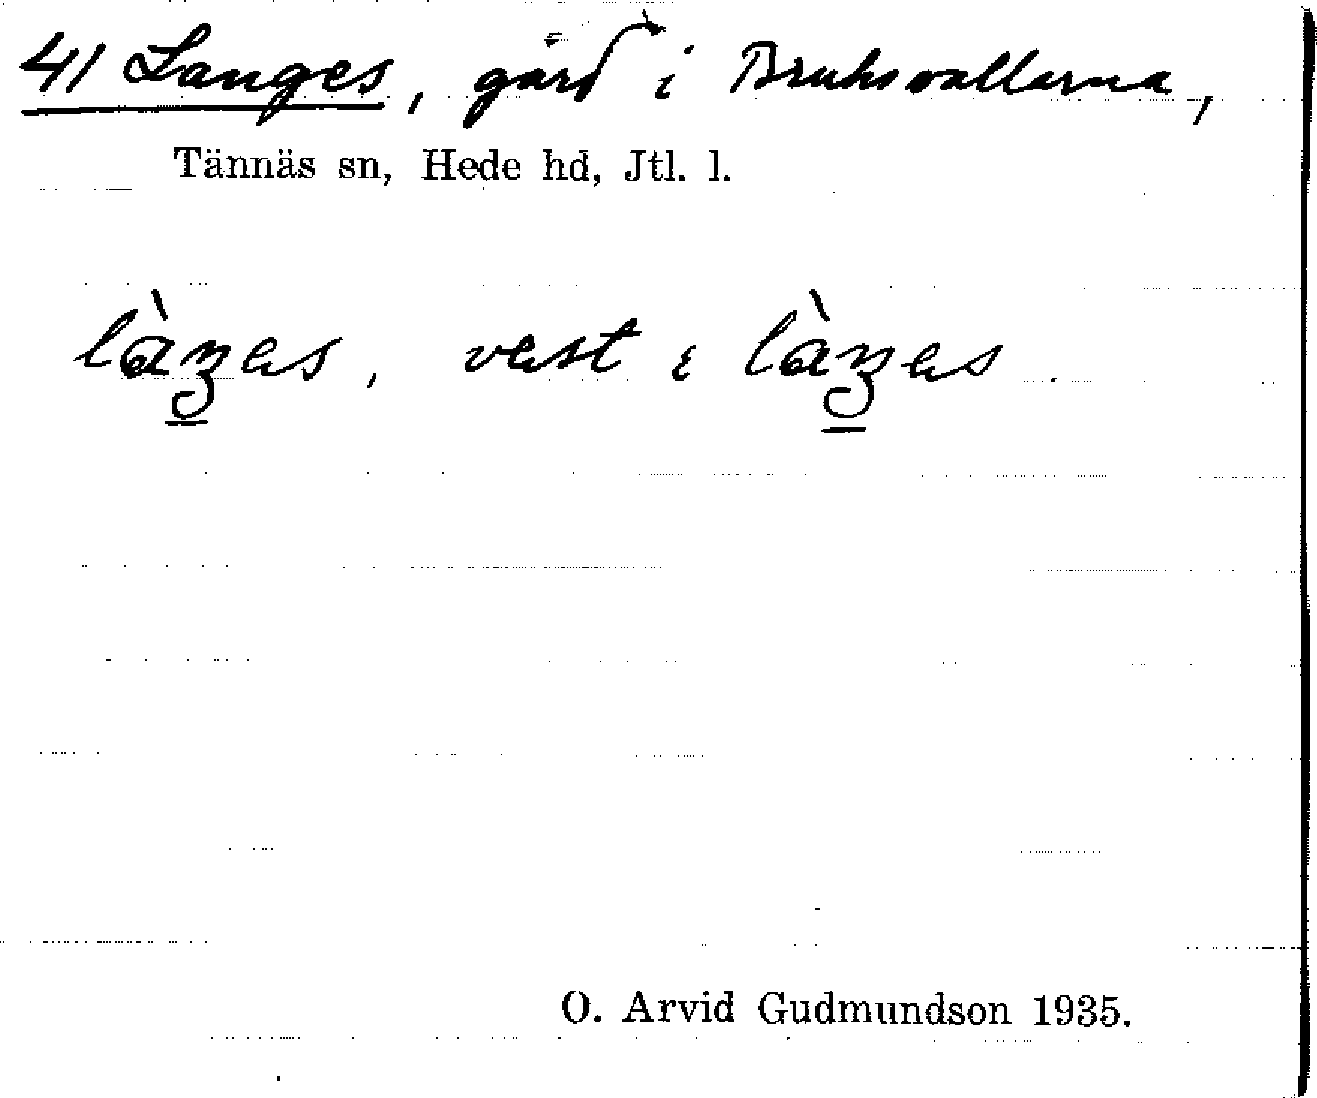 41 Langes, gård i Bruksvallarna,
Tännäs sn, Hede hd, Jtl. l.
làŋes, vest i làŋes.
O. Arvid Gudmundson 1935.